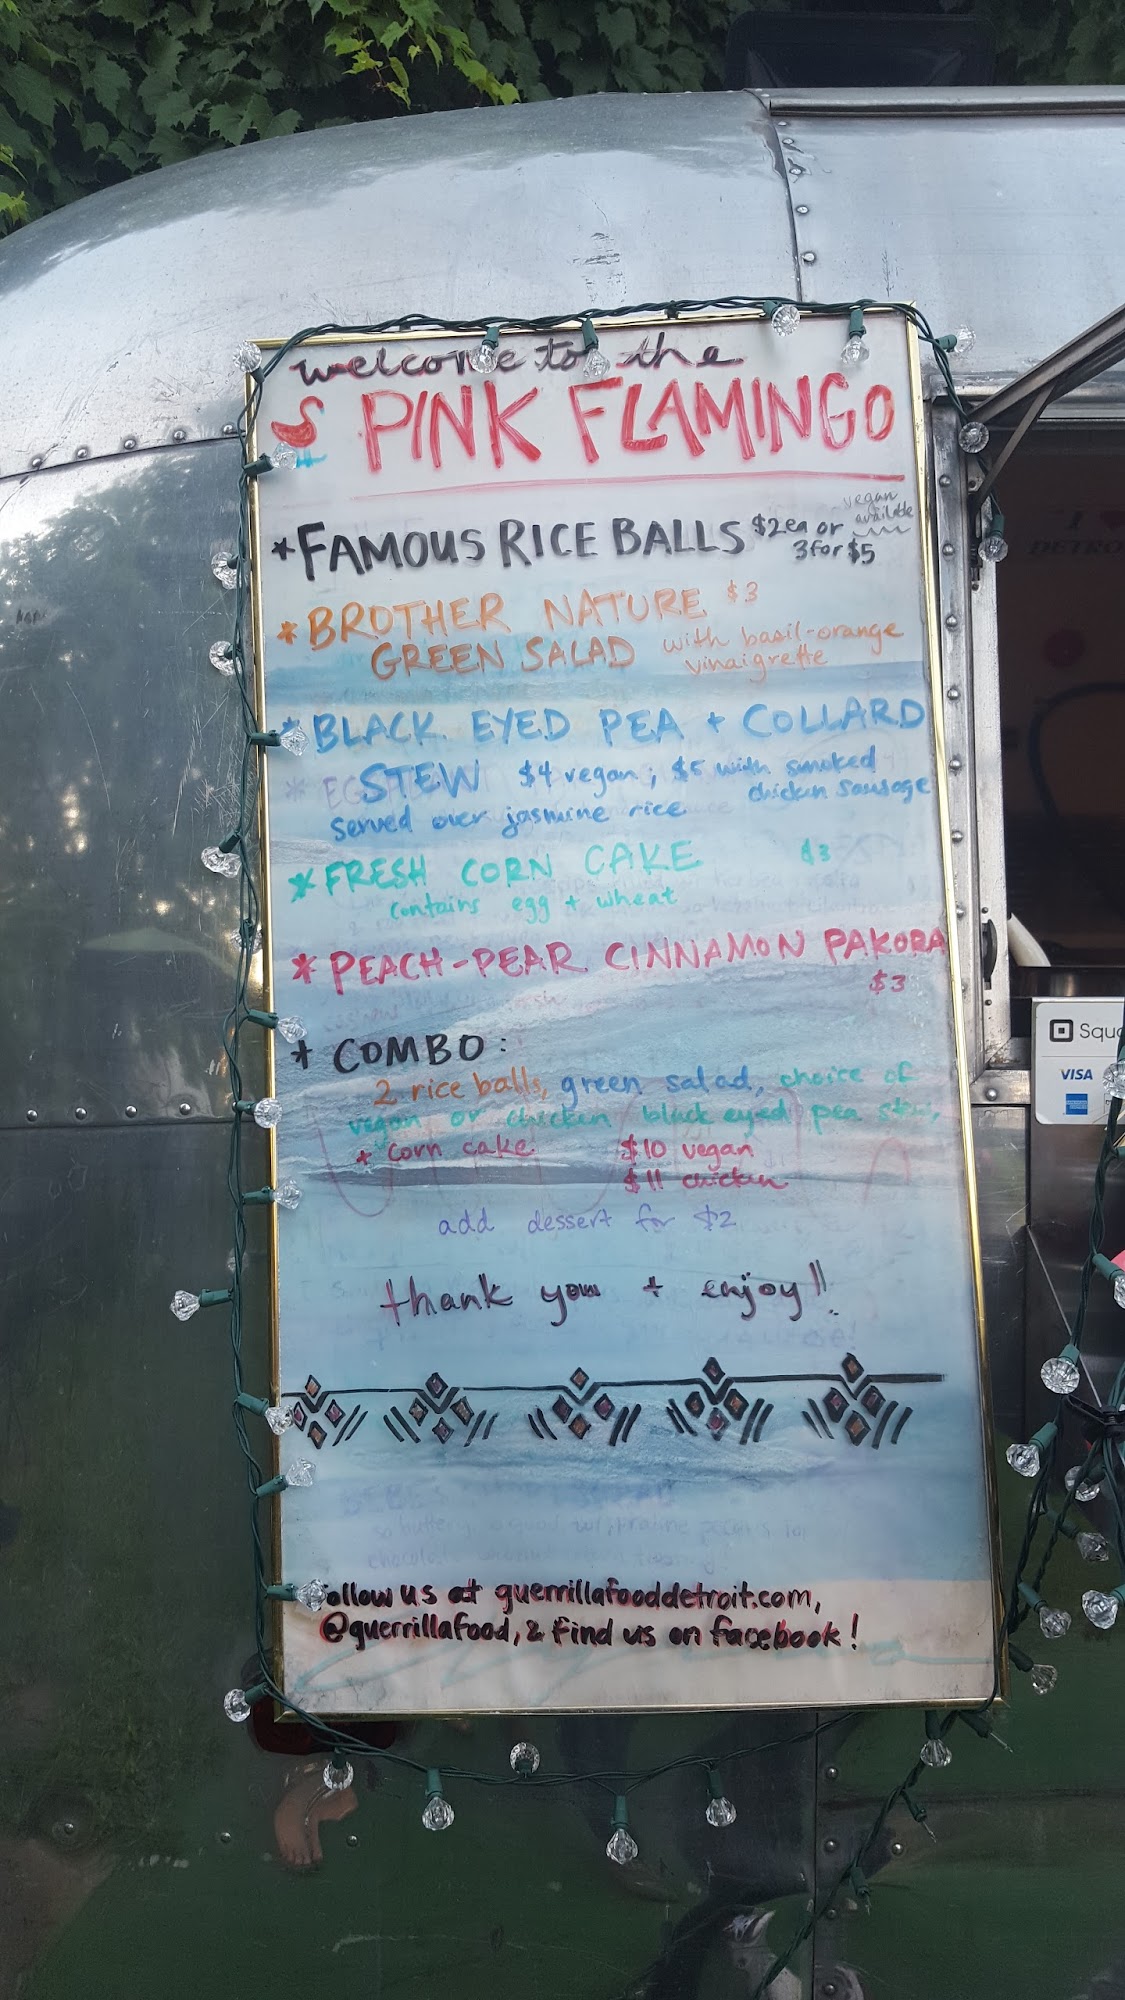 welcome to the
PINK FLAMINGO
* FAMOUS RICE BALLS $2ea or vegan available
3 for $5
* BROTHER NATURE $3
GREEN SALAD with basil-orange
vinaigrette
* BLACK EYED PEA + COLLARD
STEW $4 vegan; $5 with smoked
chicken sausage
served over jasmine rice
* FRESH CORN CAKE $3
contains egg + wheat
* PEACH-PEAR CINNAMON PAKORA
$3
* COMBO:
2 rice balls, green salad, choice of
vegan or chicken black eyed pea stew,
+ corn cake $10 vegan
$11 chicken
add dessert for $2
thank you + enjoy!!
follow us at guerrillafooddetroit.com,
@guerrillafood, & find us on facebook!
I ❤
DETRO
Squa
VISA